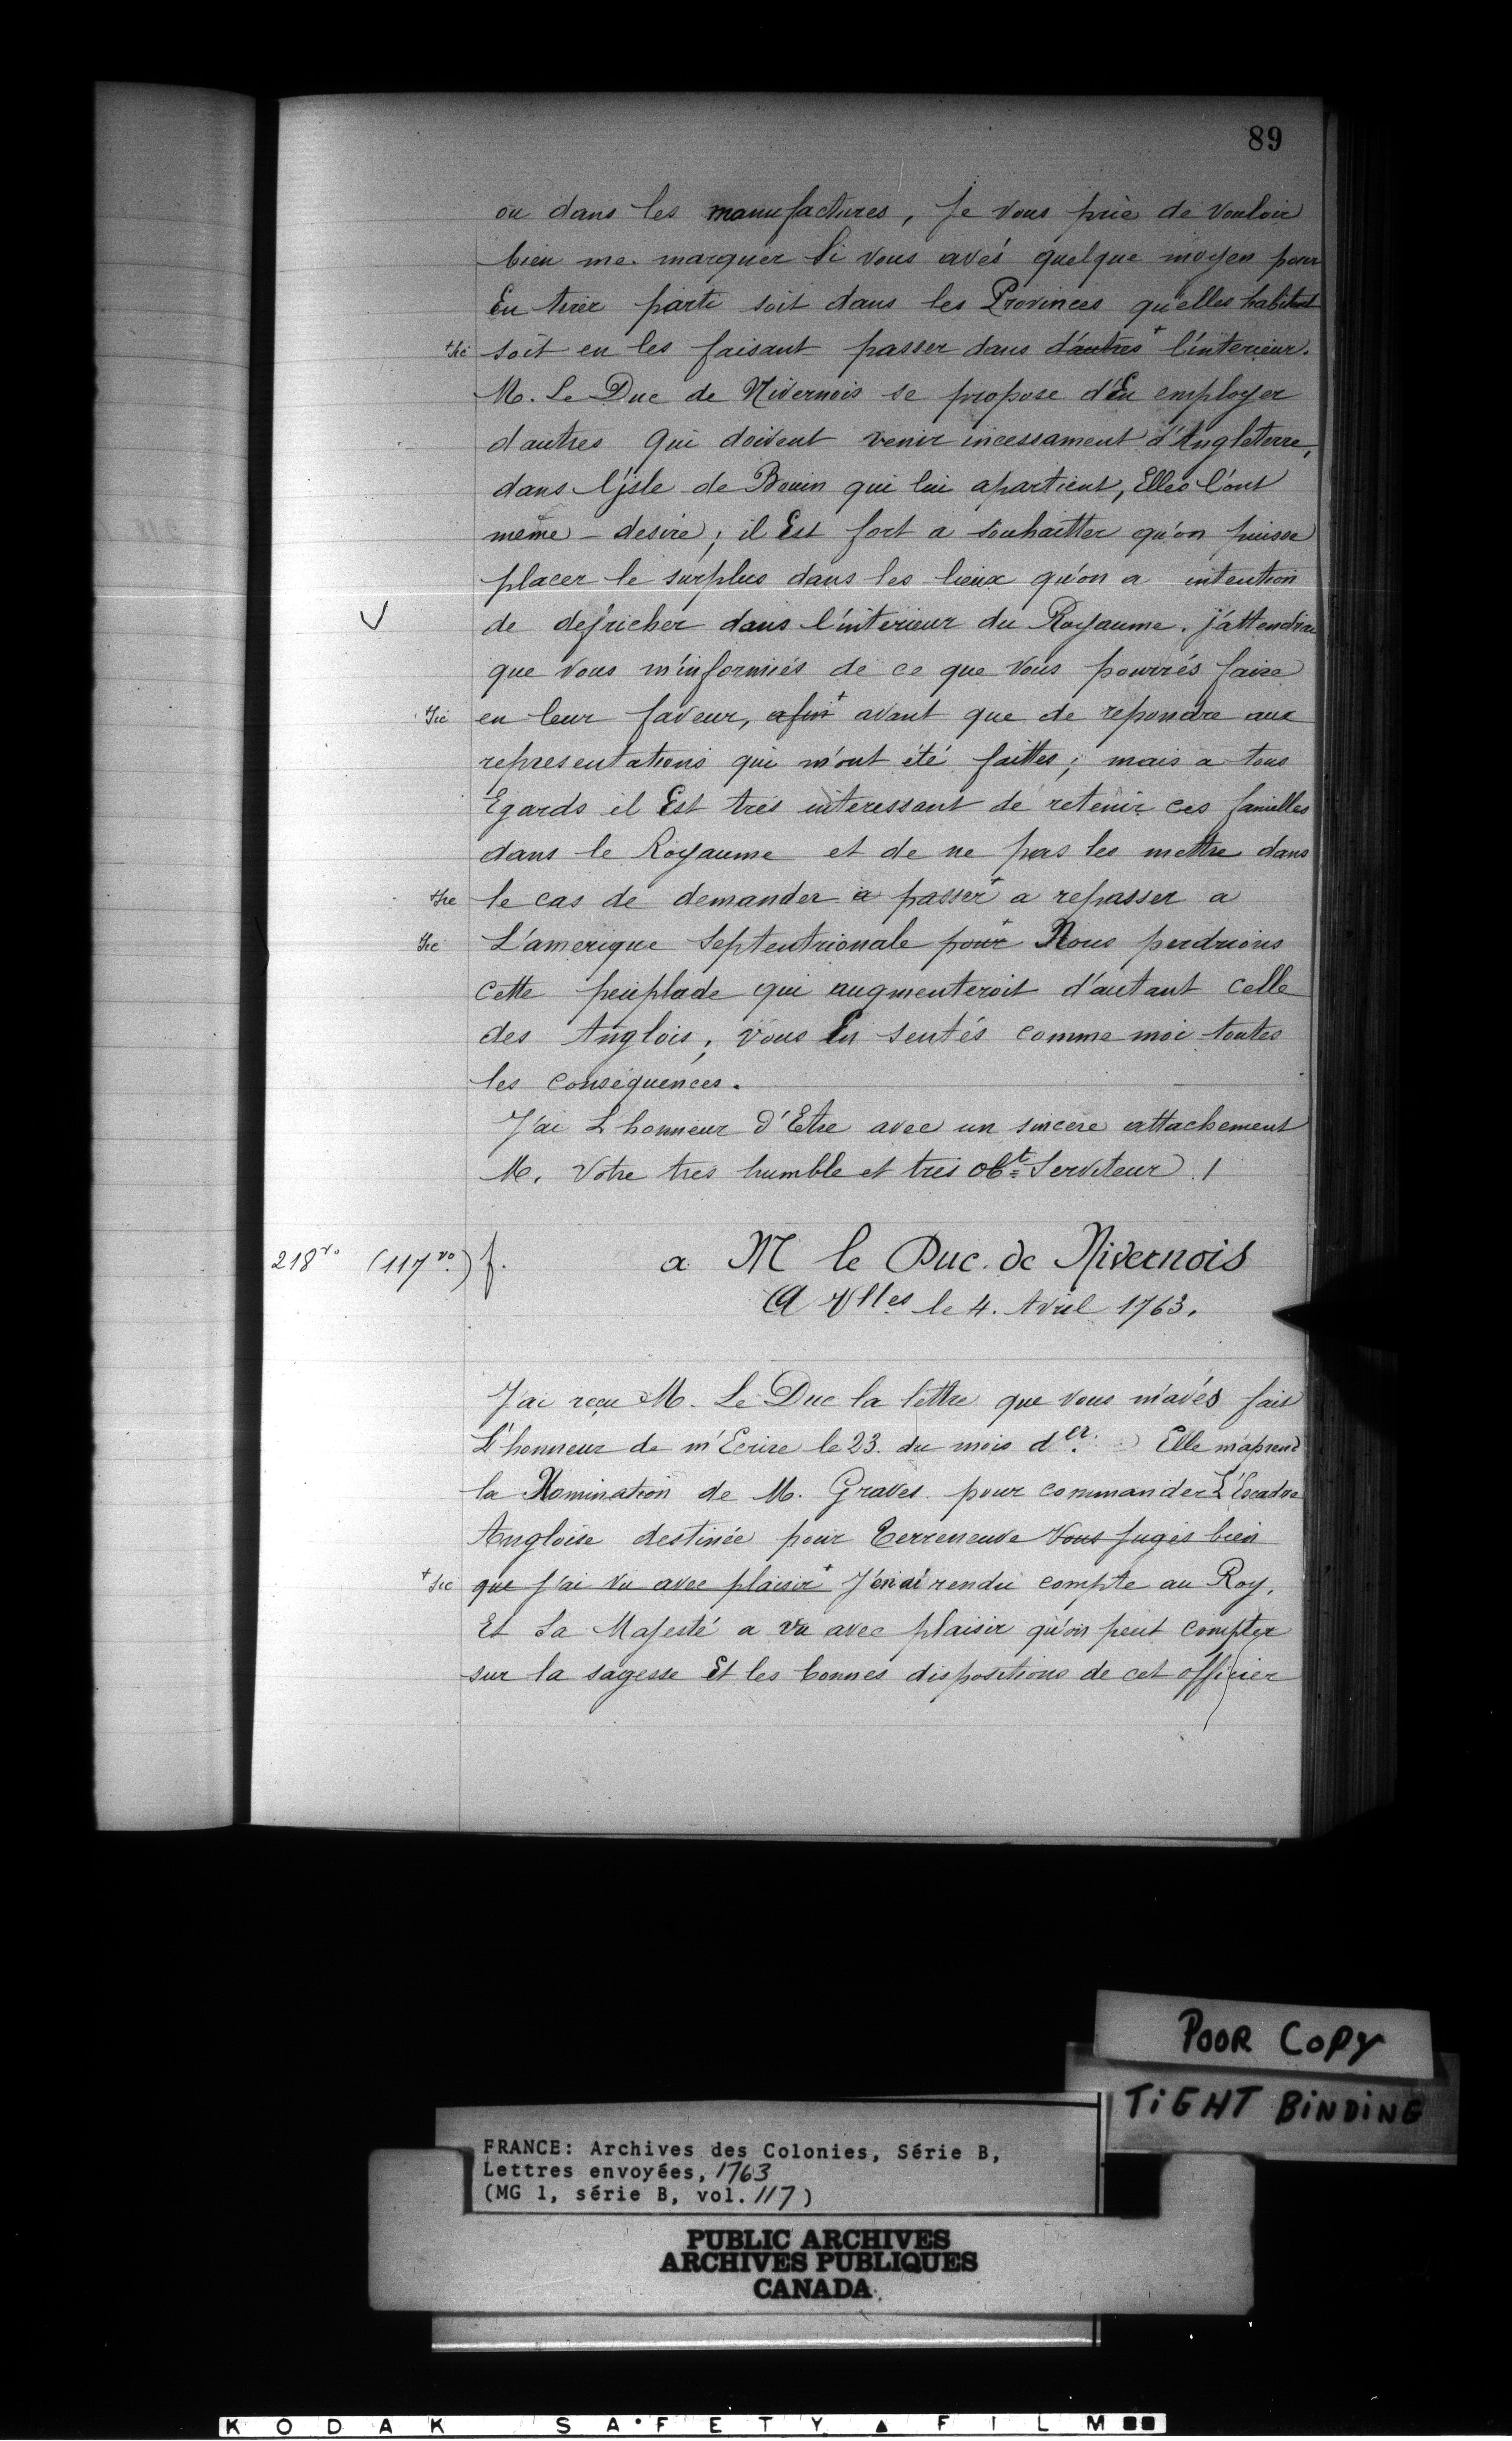 89
ou dans les manufactures, Je vous prie de vouloir
bien me marquer Si vous avés quelque moyen pour
En tirer parti soit dans les Provinces qu'elles habitent
+sic soit en les faisant passer dans d'autres+ l'interieur.
M. Le Duc de Nivernois se propose d'En employer
d'autres Qui doivent venir incessament d'Angleterre,
dans l'jsle de Bouin qui lui apartient, Elles l'ont
même desiré; il Est fort a souhaitter qu'on puisse
placer le surplus dans les lieux qu'on a intention
de défricher dans l'interieur du Royaume. j'attendrai
que vous m'informiés de ce que vous pourrés faire
sic en leur faveur, afin+ avant que de repondre aux
representations qui m'ont été faittes; mais a tous
Egards il Est très interessant de retenir ces familles
dans le Royaume et de ne pas les mettre dans
+sic le cas de demander a passer+ a repasser a
sic L'amerique Septentrionale pour+ Nous perdrions
cette peuplade qui augmenteroit d'autant celle
des Anglois; vous En sentés comme moi toutes
les consequences.
J'ai L'honneur d'Etre avec un sincere attachement
M. Votre tres humble et tres obt Serviteur
218vo (117vo) f. a M le Duc de Nivernois
A Vlles le 4. Avril 1763.
J'ai reçu M. Le Duc la lettre que vous m'avés fait
L'honneur de m'Ecrire le 23. du mois der. Elle m'aprend
la Nomination de M. Graves pour commander L'Escadre
Angloise destinée pour Terreneuve Vous jugés bien
+sic que j'ai vu avec plaisir+ J'en ai rendu compte au Roy,
Et Sa Majesté a vu avec plaisir qu'on peut compter
sur la sagesse Et les bonnes dispositions de cet officier
POOR COPY
TIGHT BINDING
FRANCE: Archives des Colonies, Série B,
Lettres envoyées, 1763
(MG 1, série B, vol. 117)
PUBLIC ARCHIVES
ARCHIVES PUBLIQUES
CANADA
KODAK SAFETY FILM